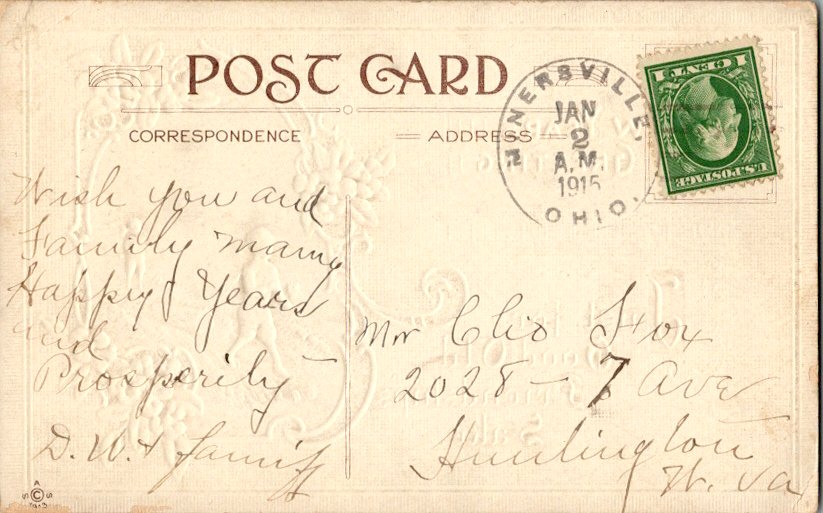 POST CARD
CORRESPONDENCE
ADDRESS
MINERSVILLE,
JAN
2
A.M.
1915
OHIO.
1 CENT 1
U.S. POSTAGE
Wish you and
Family many
Happy Years
and
Prosperity —
D. W. & family
Mr Clio Fox
2028 – 7 Ave
Huntington
W. Va
A
S © S